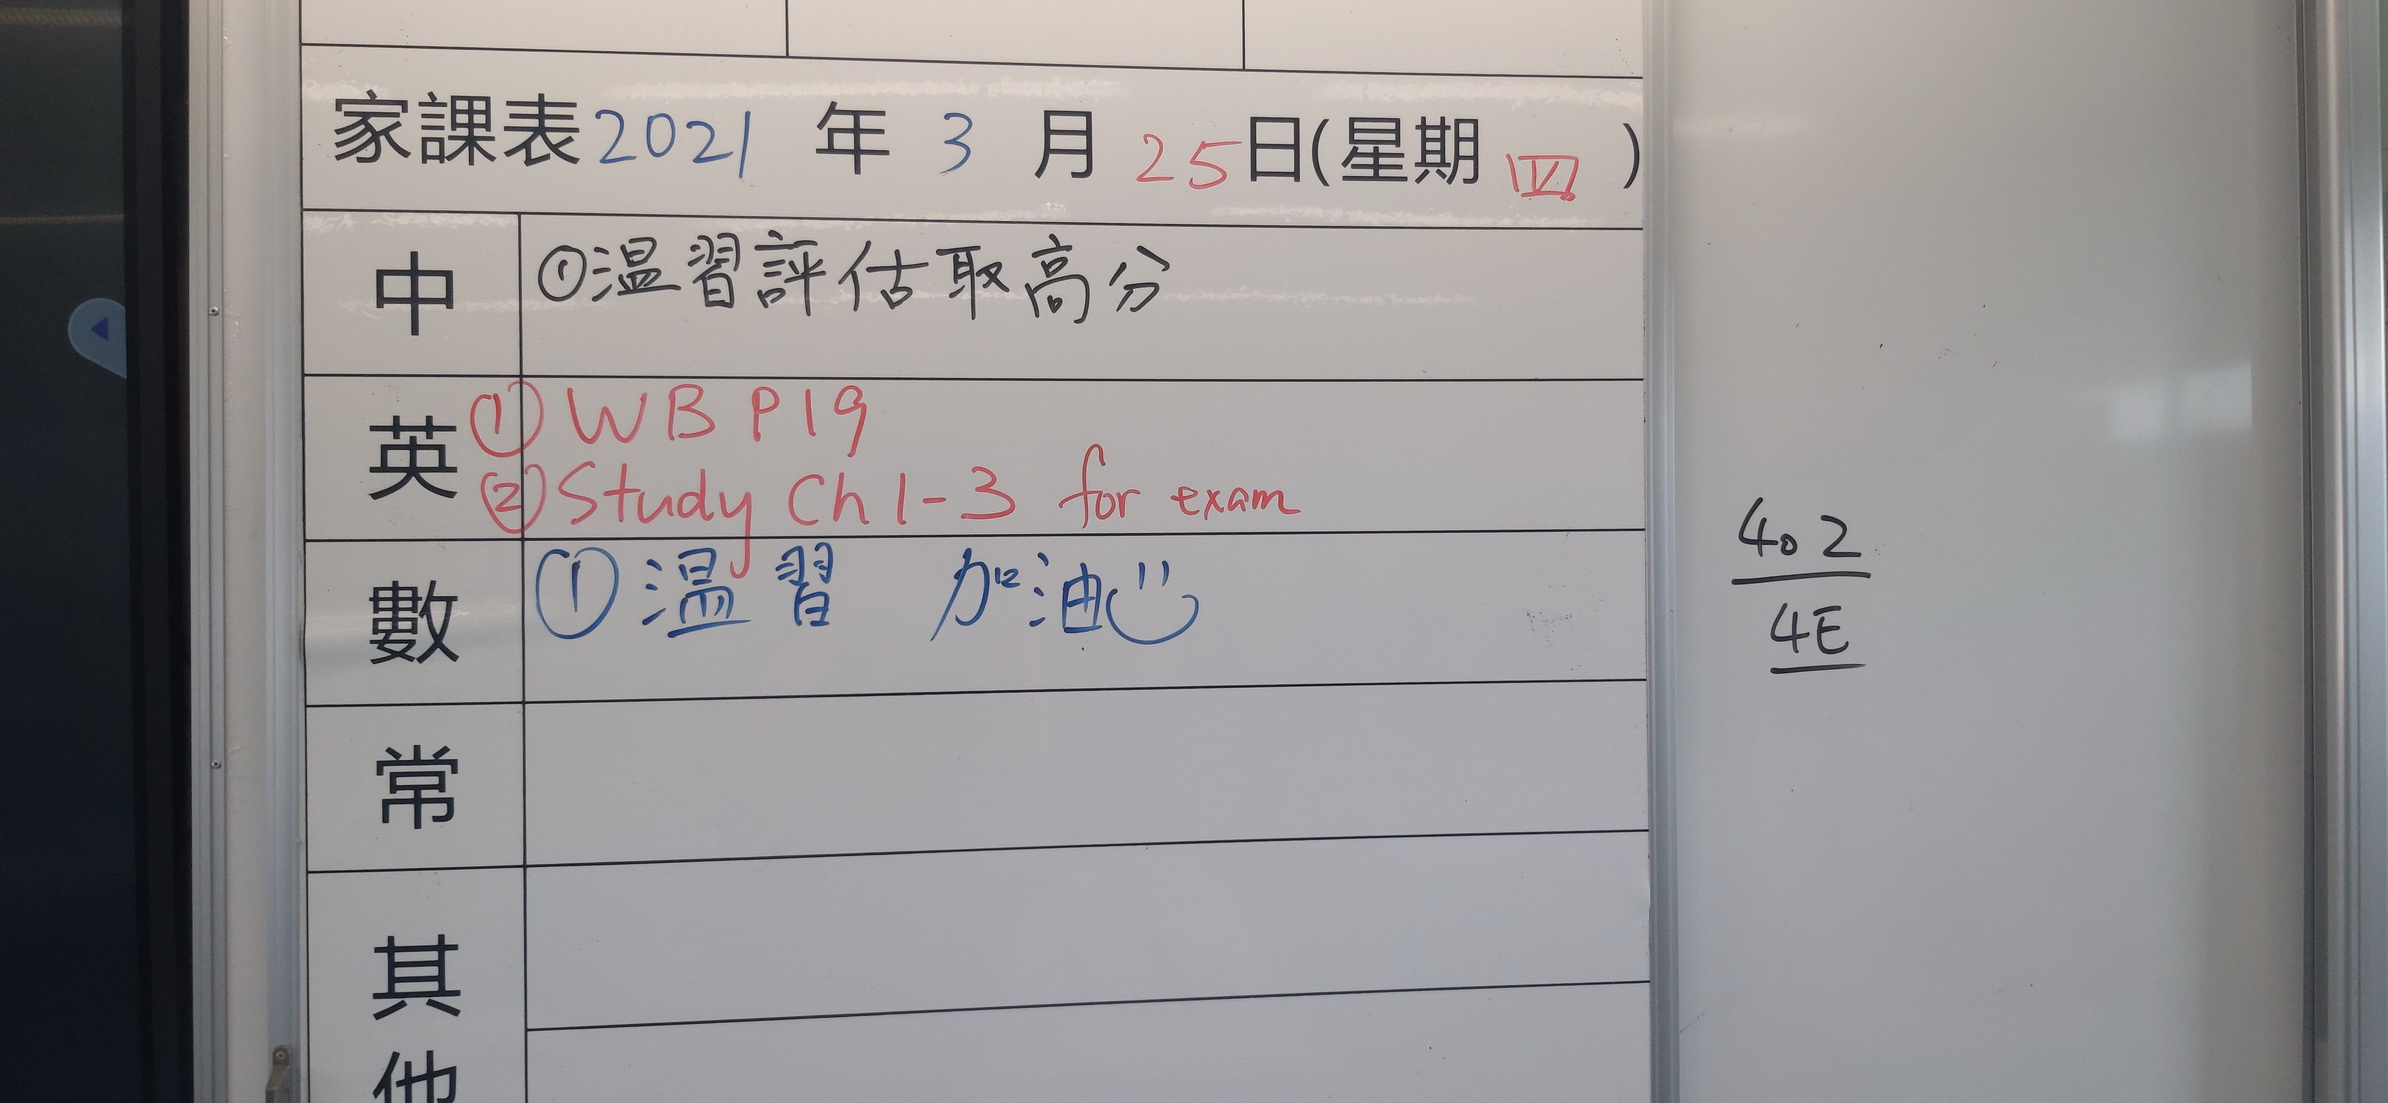 家課表 2021 年 3 月 25 日(星期 IV )
中 ①温習評估取高分
英 ① WB P19
② Study Ch 1-3 for exam
數 ① 温習 加油
常
其他
402
4E